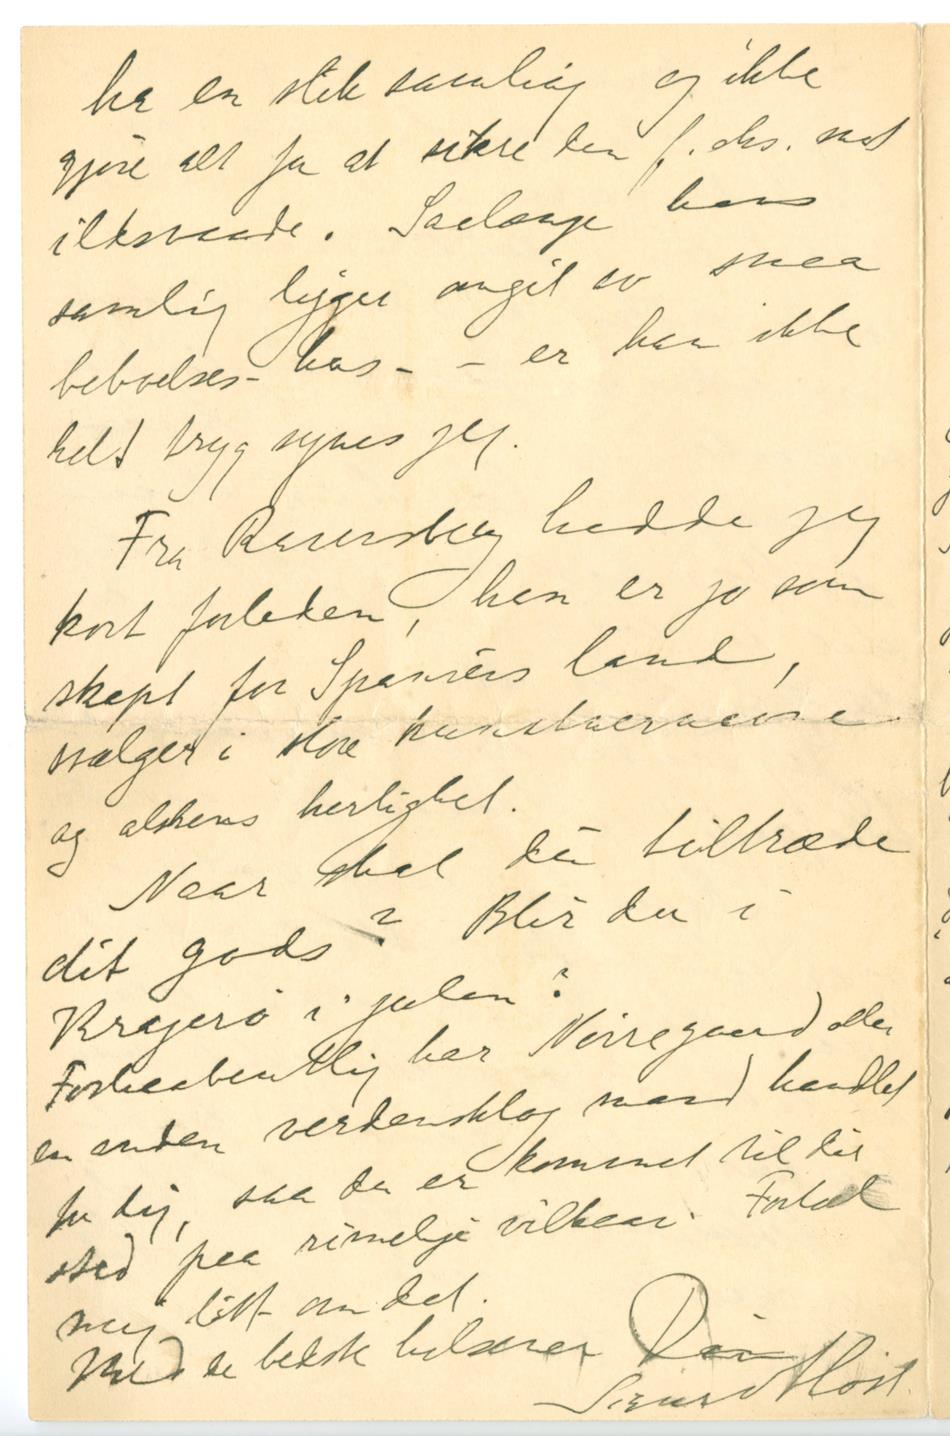 ha en slik samling og ikke
gjøre alt for at sikre den f. eks. mot
ildsvaade. Saalænge hans
samling ligger omgit av smaa
beboelses-hus - - er han ikke
helt tryg synes jeg.
Fra Ravensberg hadde jeg
kort forleden, han er jo som
skapt for Spaniens land,
svælger i store kunstnernavne
og alskens herlighet.
Naar skal du tiltræde
dit gods? Blir du i
Kragerø i julen?
Forhaabentlig har Nørregaard eller
en anden verdensklog mand handlet
for dig, saa du er kommet til dit
sted paa rimelige vilkaar. Fortæl
mig litt om det.
Med de bedste hilsener Din
Sigurd Høst.